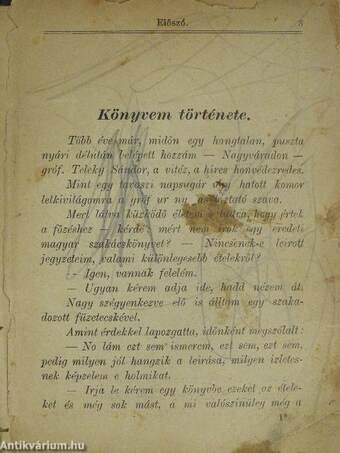 Előszó. 3
Könyvem története.
Több éve már, midőn egy hangtalan, puszta
nyári délután belépett hozzám — Nagyváradon —
gróf. Teleky Sándor, a vitéz, a hires honvédezredes.
Mint egy tavaszi napsugár úgy hatott komor
lelkivilágomra a gróf ur szava.
Mert látva küzködő tudva, hogy értek
a főzéshez — kérdé: mért nem írok egy eredeti
magyar szakácskönyvet? — Nincsenek-e leirott
jegyzeteim, valami különlegesebb ételekről?
— Igen, vannak felelém.
— Ugyan kérem adja ide, hadd nézem át.
Nagy szégyenkezve elő is álltam egy szaka-
dozott füzetecskével.
Amint érdekkel lapozgatta, időnként megszólalt:
— No lám ezt sem ismerem, ezt sem, ezt sem,
pedig milyen jól hangzik a leirása, milyen izletes-
nek képzelem e holmikat.
— Irja le kérem egy könyvbe ezeket az étele-
ket és még sok mást, a mi valószinűleg még a
1*
Antikvárium.hu